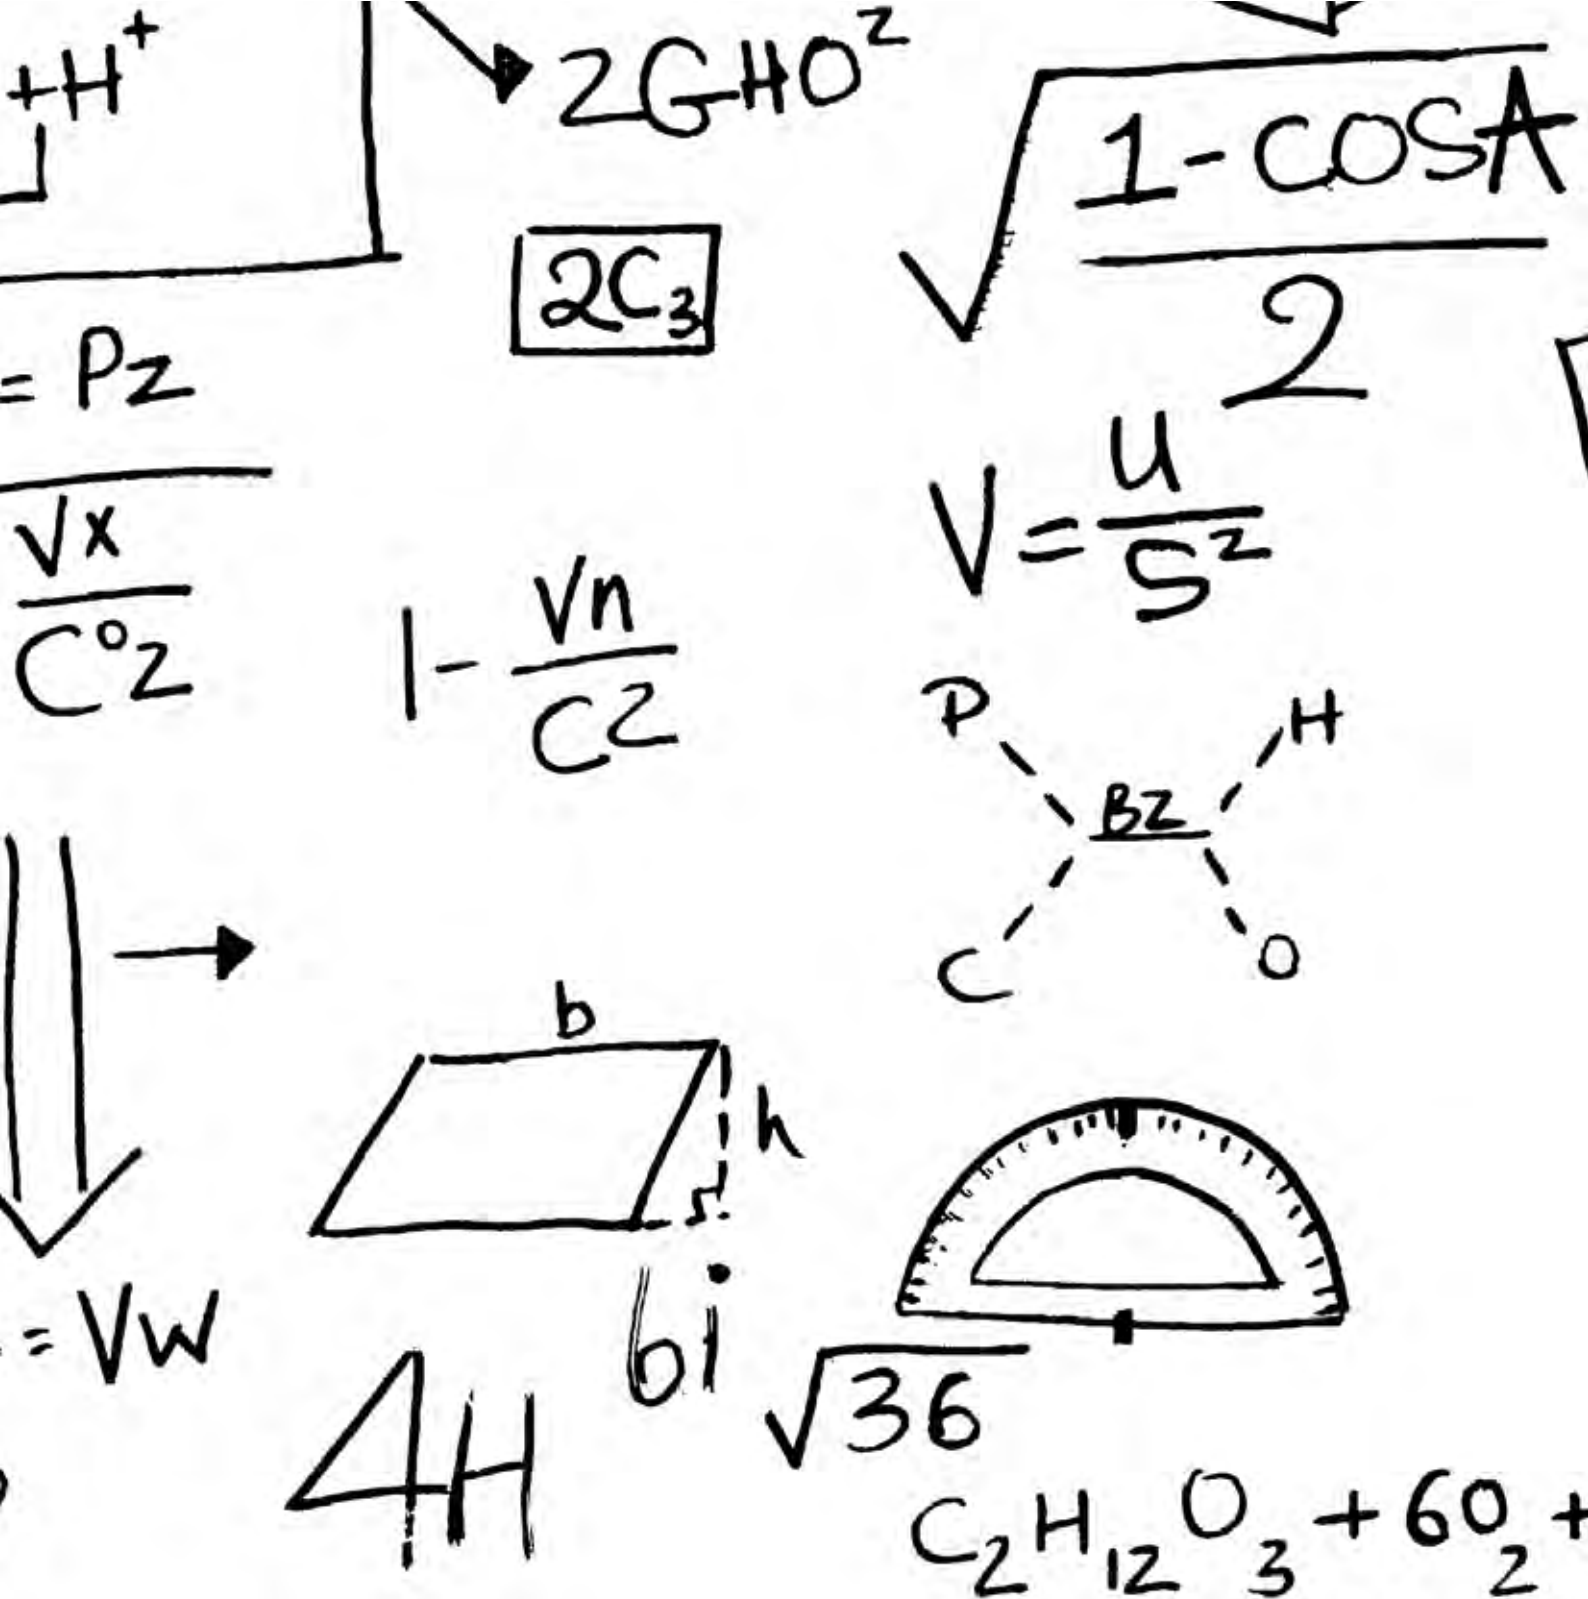 +H⁺
2GHO²
√(1-COSA
2
2C₃
= Pz
√x
C°z
1 - Vn
C2
V = u
S²
P
H
BZ
C
O
b
h
= VW
6i
4H
√36
C₂H₁₂O₃ + 6O₂ +